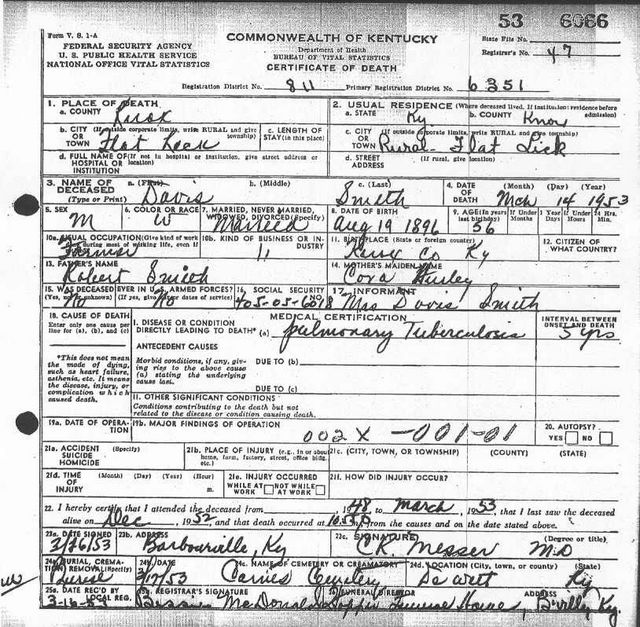 53 6086
Form V. S. 1-A
COMMONWEALTH OF KENTUCKY
State File No.
FEDERAL SECURITY AGENCY
U. S. PUBLIC HEALTH SERVICE
NATIONAL OFFICE VITAL STATISTICS
Department of Health
BUREAU OF VITAL STATISTICS
CERTIFICATE OF DEATH
Registrar's No. 47
Registration District No. 811 Primary Registration District No. 6351
1. PLACE OF DEATH
a. COUNTY Knox
2. USUAL RESIDENCE (Where deceased lived. If institution: residence before admission)
a. STATE Ky b. COUNTY Knox
b. CITY (If outside corporate limits, write RURAL and give township) OR TOWN Flat Lick
c. LENGTH OF STAY (in this place)
c. CITY (If outside corporate limits, write RURAL and give township) OR TOWN Rural - Flat Lick
d. FULL NAME OF (If not in hospital or institution, give street address or location) HOSPITAL OR INSTITUTION
d. STREET ADDRESS (If rural, give location)
3. NAME OF DECEASED (Type or Print) a. (First) Davis b. (Middle) c. (Last) Smith
4. DATE OF DEATH (Month) (Day) (Year) Mch 14 1953
5. SEX M
6. COLOR OR RACE W
7. MARRIED, NEVER MARRIED, WIDOWED, DIVORCED (Specify) Married
8. DATE OF BIRTH Aug 19 1896
9. AGE (In years last birthday) 56 If Under 1 Year Months Days If Under 24 Hrs. Hours Min.
10a. USUAL OCCUPATION (Give kind of work done during most of working life, even if retired) Farmer
10b. KIND OF BUSINESS OR INDUSTRY 11
11. BIRTHPLACE (State or foreign country) Knox Co Ky
12. CITIZEN OF WHAT COUNTRY?
13. FATHER'S NAME Robert Smith
14. MOTHER'S MAIDEN NAME Cora
15. WAS DECEASED EVER IN U.S. ARMED FORCES? (Yes, no, or unknown) (If yes, give war or dates of service) No
16. SOCIAL SECURITY NO. 405-05-6018
17. INFORMANT Mrs Davis Smith
18. CAUSE OF DEATH
Enter only one cause per line for (a), (b), and (c)
MEDICAL CERTIFICATION
INTERVAL BETWEEN ONSET AND DEATH
I. DISEASE OR CONDITION DIRECTLY LEADING TO DEATH* (a) Pulmonary Tuberculosis 5 yrs
*This does not mean the mode of dying, such as heart failure, asthenia, etc. It means the disease, injury, or complication which caused death.
ANTECEDENT CAUSES
Morbid conditions, if any, giving rise to the above cause (a) stating the underlying cause last.
DUE TO (b)
DUE TO (c)
II. OTHER SIGNIFICANT CONDITIONS
Conditions contributing to the death but not related to the disease or condition causing death.
19a. DATE OF OPERATION
19b. MAJOR FINDINGS OF OPERATION
002X -001-01
20. AUTOPSY? YES NO
21a. ACCIDENT SUICIDE HOMICIDE (Specify)
21b. PLACE OF INJURY (e.g., in or about home, farm, factory, street, office bldg. etc.)
21c. (CITY, TOWN, OR TOWNSHIP) (COUNTY) (STATE)
21d. TIME OF INJURY (Month) (Day) (Year) (Hour) m.
21e. INJURY OCCURRED WHILE AT WORK NOT WHILE AT WORK
21f. HOW DID INJURY OCCUR?
22. I hereby certify that I attended the deceased from 1948 to March, 1953, that I last saw the deceased
alive on Dec, 1952, and that death occurred at from the causes and on the date stated above.
23a. DATE SIGNED 3/26/53
23b. ADDRESS Barbourville, Ky
23c. SIGNATURE C.K. Messer M.D (Degree or title)
24a. BURIAL, CREMATION REMOVAL (Specify)
24b. DATE 3/17/53
24c. NAME OF CEMETERY OR CREMATORY Cemetery
24d. LOCATION (City, town, or county) (State) Dewitt Ky
25a. DATE REC'D BY LOCAL REG. 3-16-53
25b. REGISTRAR'S SIGNATURE Bessie McDonald
26. FUNERAL DIRECTOR Hopper Funeral Home, ADDRESS B'ville, Ky.